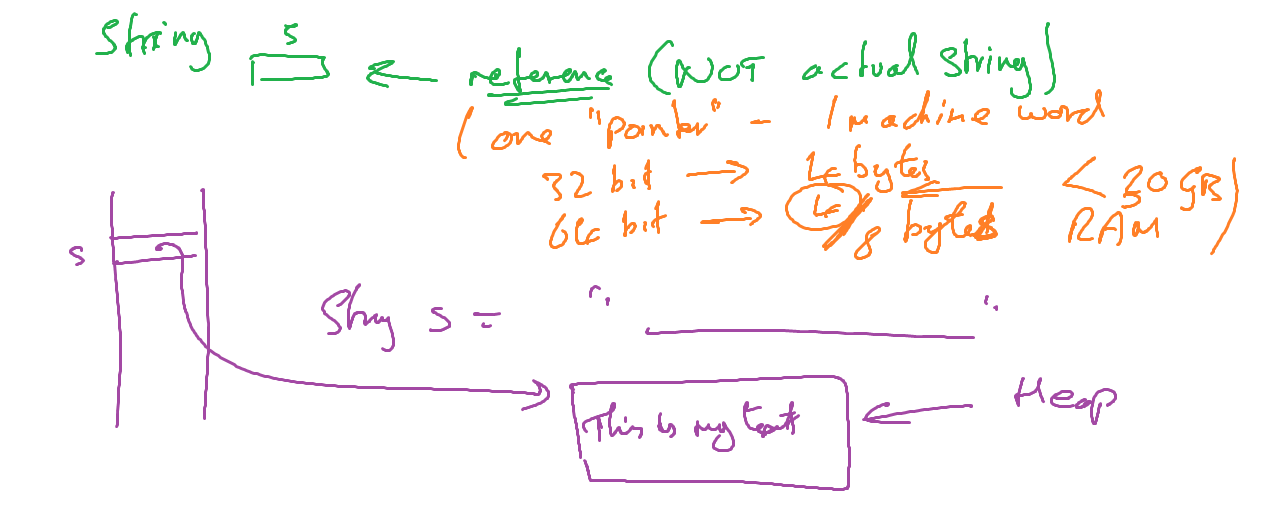 String s ← reference (NOT actual String)
(one "pointer" - 1 machine word
32 bit → 4 bytes < 30 GB
64 bit → 4/8 bytes RAM)
s
String s = " "
This is my text ← Heap